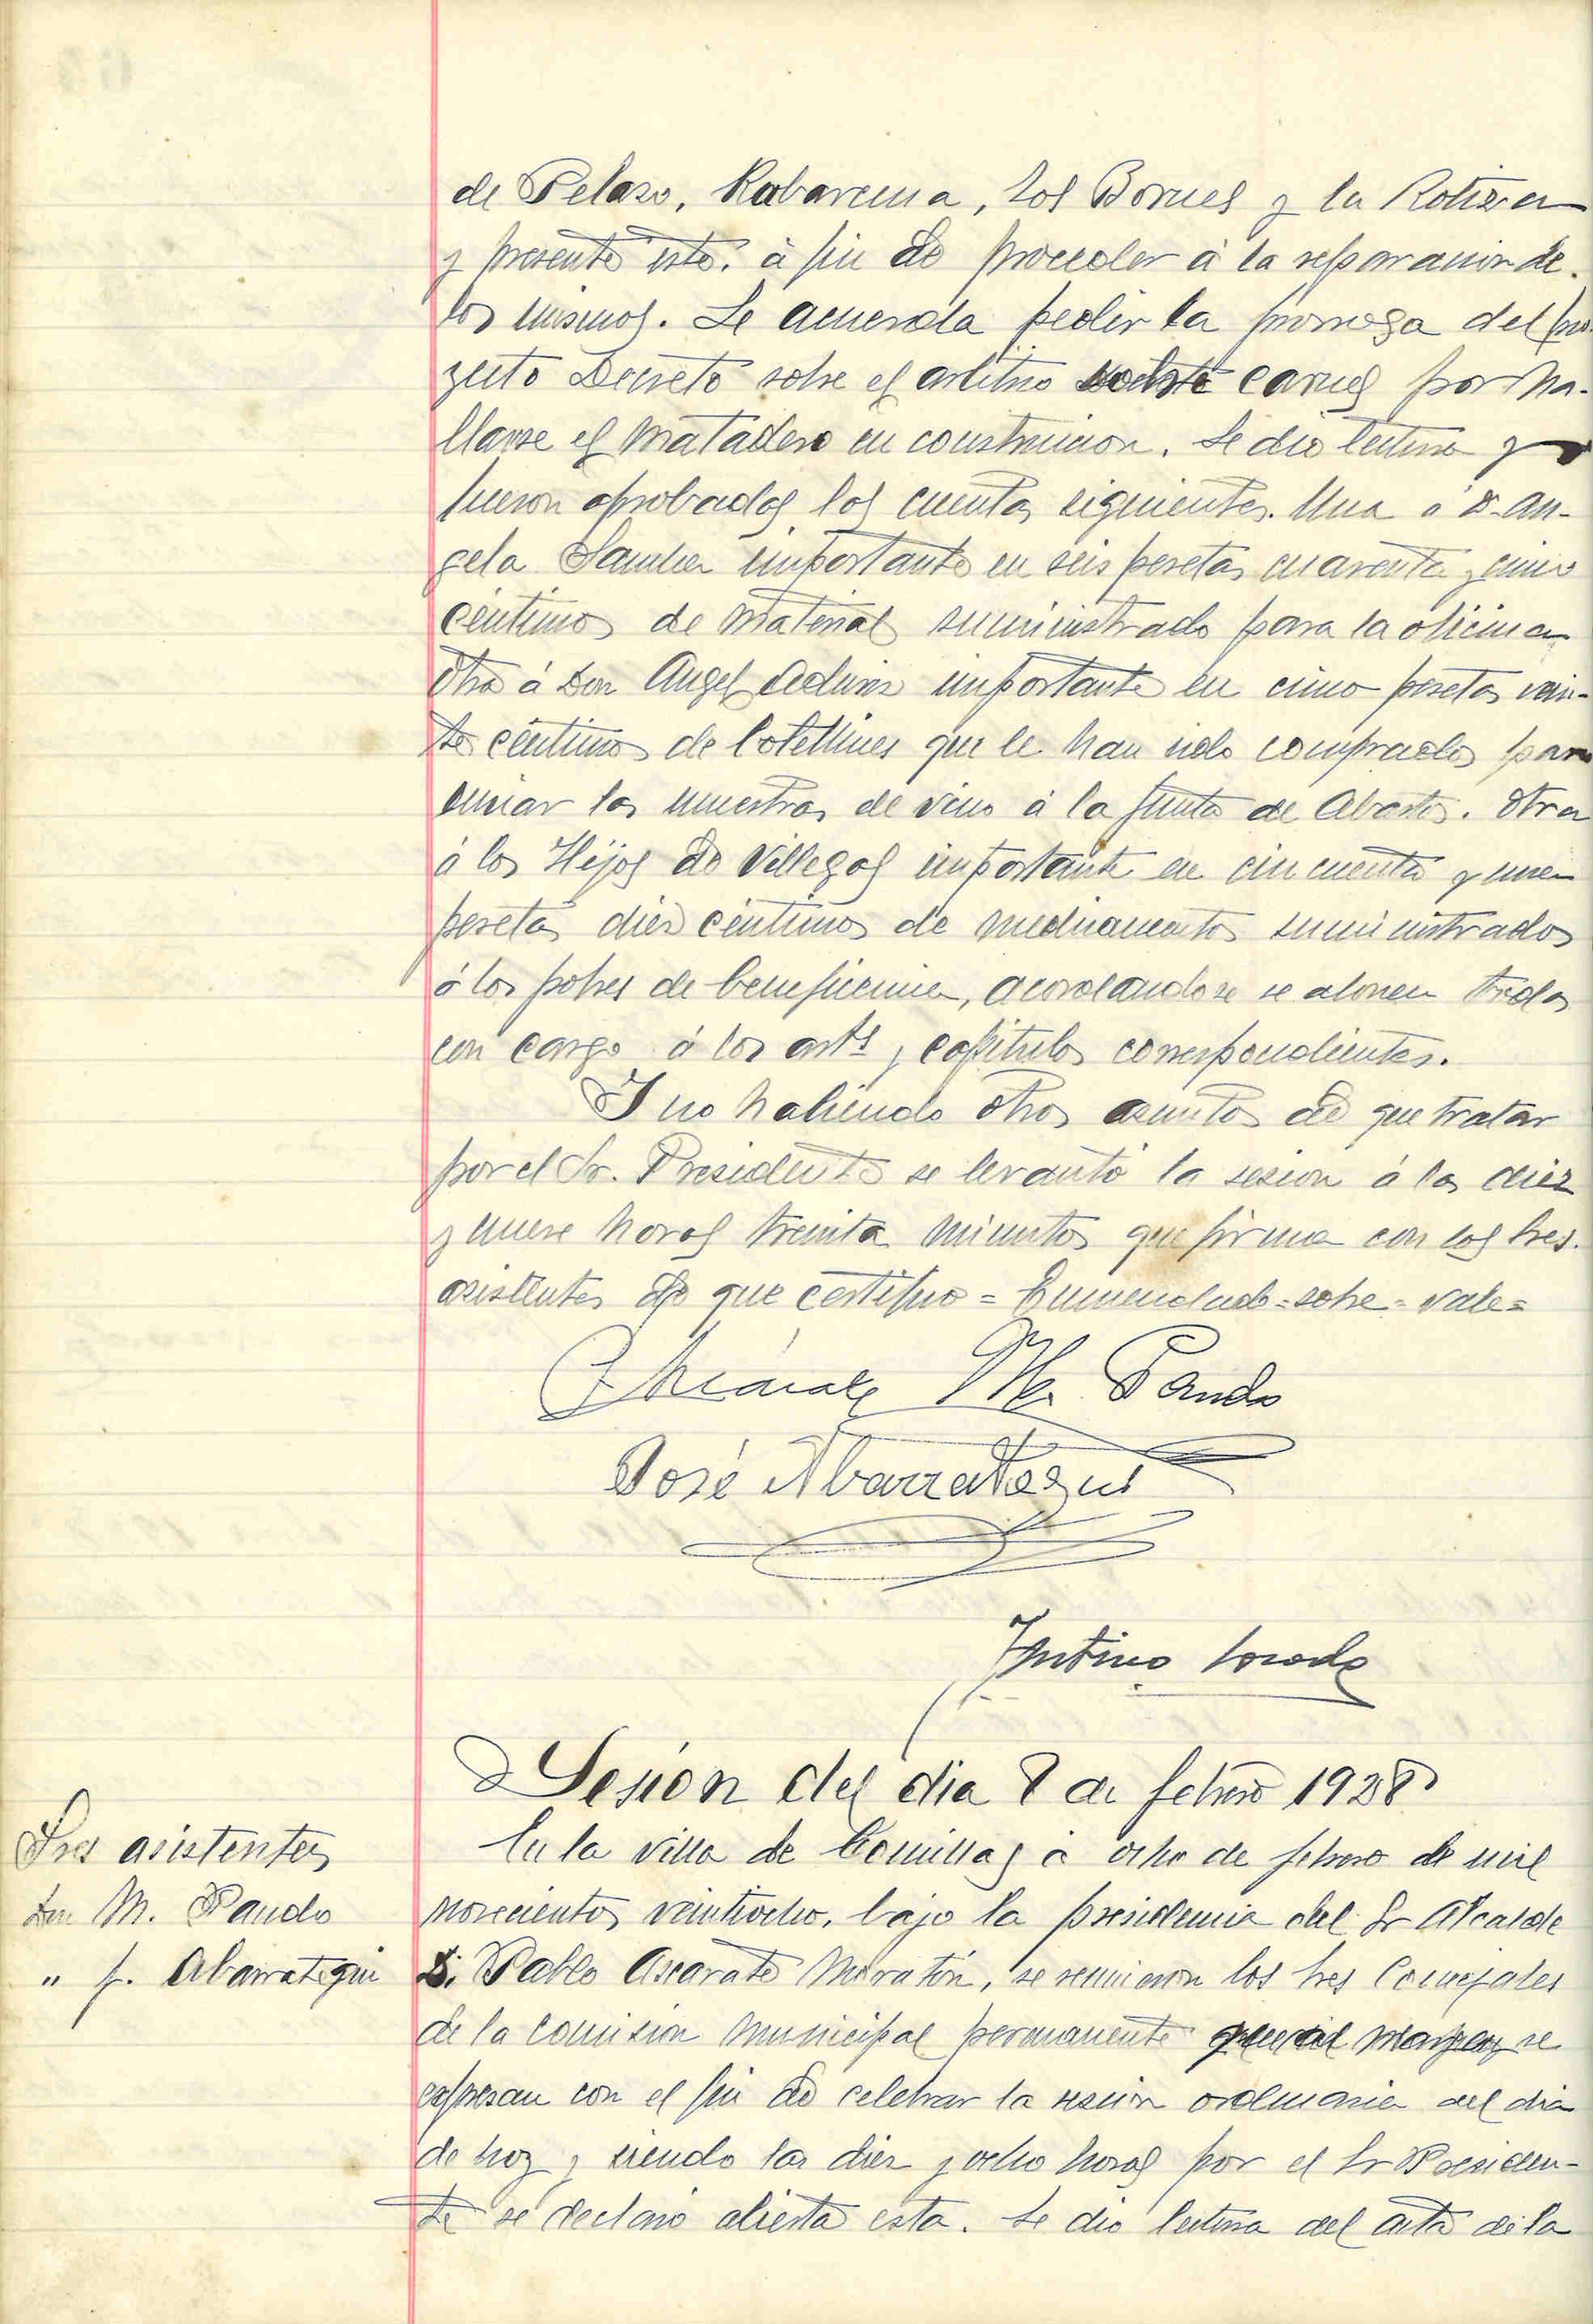 de Pelazo, Rabarcena, los Bornes y la Rotiza
y presente este. á fin de proceder á la reparacion de
los mismos. Se acuerda pedir la prorroga del pro
yecto Decreto sobre el arbitrio sobre carnes por ha-
llarse el Matadero en construccion. Se dio lectura y
fueron aprobados las cuentas siguientes. Una á D. An-
gela importante en seis pesetas cuarenta y cinco
centimos de material suministrado para la oficina
otra á Don Angel importante en cinco pesetas vein-
te centimos de botellines que le han sido comprados para
enviar las muestras de vino á la Junta de Abastos. Otra
á los Hijos de Villegas importante en cincuenta y una
pesetas diez centimos de medicamentos suministrados
á los pobres de beneficencia, acordandose se abonen todas
con cargo á los arts y capitulos correspondientes.
Y no habiendo otros asuntos de que tratar
por el Sr. Presidente se levantó la sesion á las diez
y nueve horas treinta minutos que firma con los Sres.
asistentes de que certifico = Enmendado = sobre = vale =
M. Pando
José Abarrategui
Losada
Sesión del dia 8 de febrero 1928
Sres asistentes
Don M. Pando
" J. Abarrategui
En la villa de Comillas á ocho de febrero de mil
novecientos veintiocho, bajo la presidencia del Sr Alcalde
D. Pablo Azcarate Moratón, se reunieron los Sres Concejales
de la Comision Municipal permanente que al margen se
expresan con el fin de celebrar la sesion ordinaria del dia
de hoy y siendo las diez y ocho horas por el Sr Presiden-
te se declaró abierta esta. Se dio lectura del acta de la